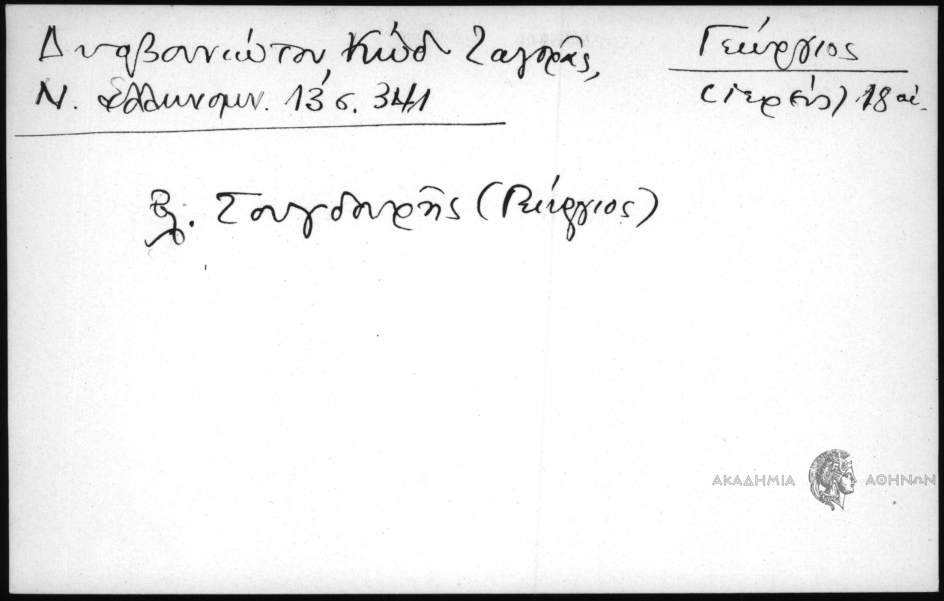 Δυοβουνιώτου Κώδ Ζαγορᾶς,
Ν. Ἑλληνομν. 13 σ. 341
Γεώργιος
(ἱερεύς) 18 αἰ.
Βλ. Σουγδουρῆς (Γεώργιος)
ΑΚΑΔΗΜΙΑ ΑΘΗΝΩΝ